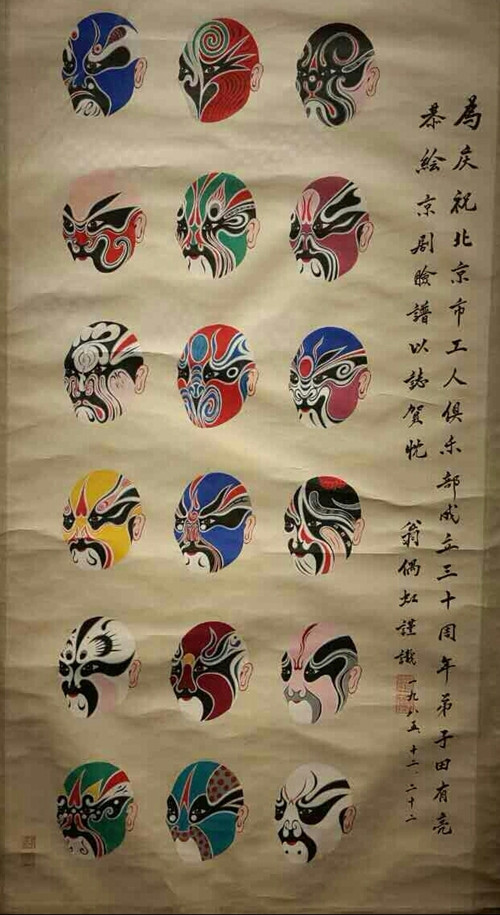 為庆祝北京市工人俱乐部成立三十周年弟子田有亮
恭绘京剧臉譜以誌賀忱
翁偶虹謹識
一九八五、十二、二十二